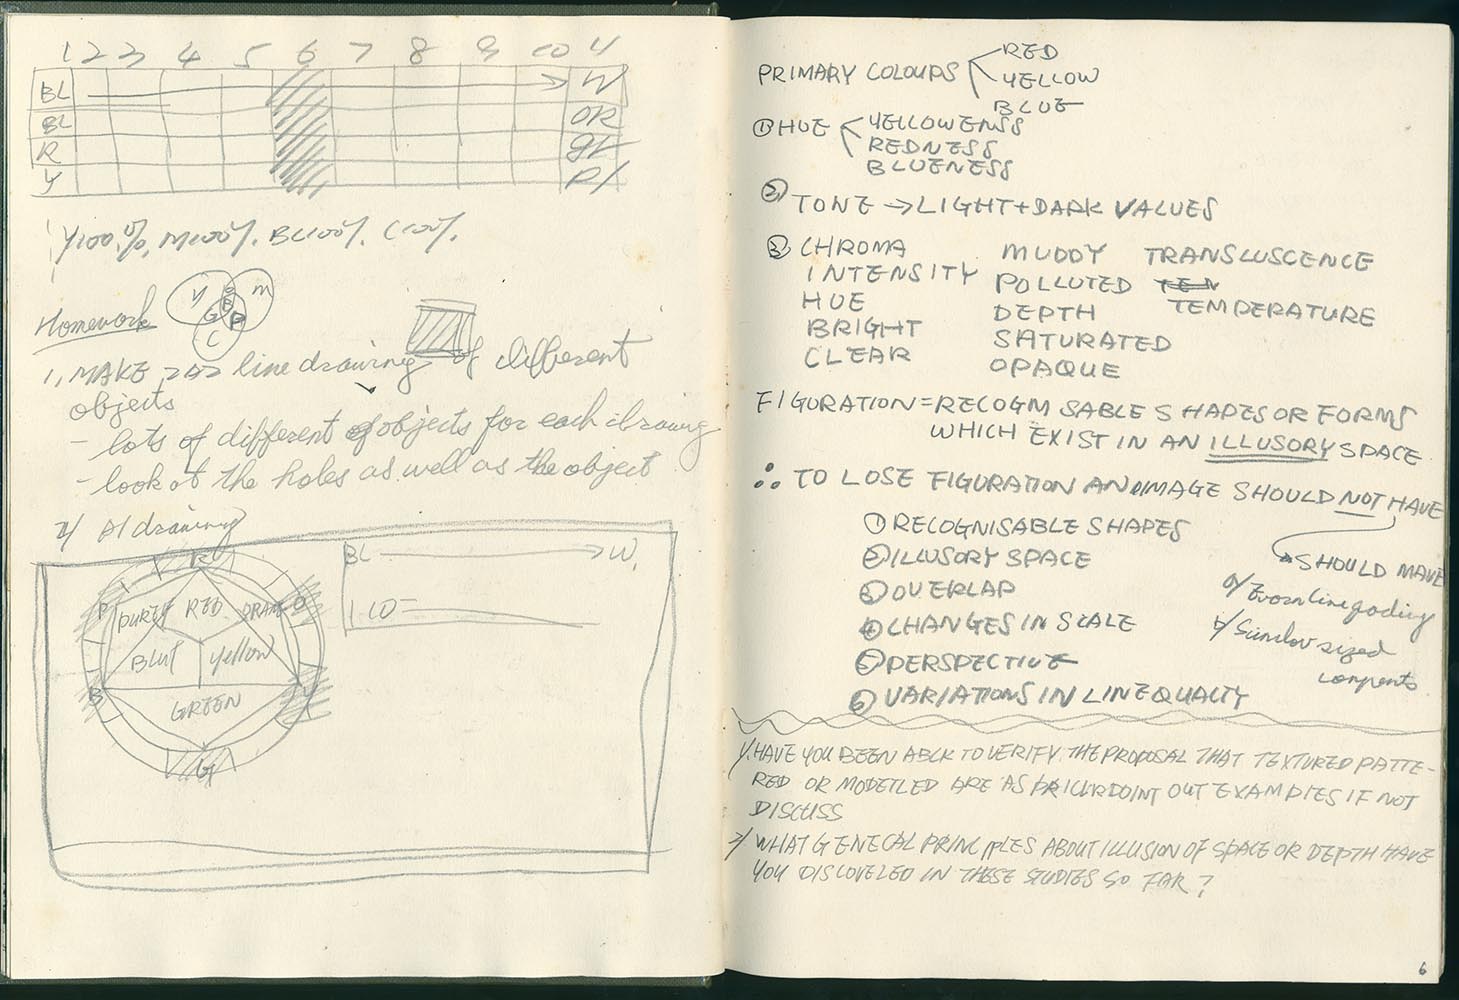 1 2 3 4 5 6 7 8 9 10 11
BL W
BL OR
R GR
Y P/
Y100%, M100%. BL100%. C100%.
Y M
G B
C
Homework
1, MAKE line drawing of different
objects
- lots of different objects for each drawing
- look at the holes as well as the object
2/ A1 drawing
R
BL W,
P PURET RED ORAN O
1 10
BLUT Yellow
B Y
GREEN
G
PRIMARY COLOURS RED
YELLOW
BLUE
① HUE YELLOWENSS
REDNESS
BLUENESS
② TONE → LIGHT + DARK VALUES
③ CHROMA MUDDY TRANSLUSCENCE
INTENSITY POLLUTED TEN
HUE DEPTH TEMPERATURE
BRIGHT SATURATED
CLEAR OPAQUE
FIGURATION = RECOGNISABLE SHAPES OR FORMS
WHICH EXIST IN AN ILLUSORY SPACE
∴ TO LOSE FIGURATION AN IMAGE SHOULD NOT HAVE
① RECOGNISABLE SHAPES
② ILLUSORY SPACE SHOULD MAVE
③ OVERLAP a/ Evern line
④ CHANGES IN SCALE b/ Similar sized
⑤ PERSPECTIVE
⑥ VARIATIONS IN LINE QUALTY
1/. HAVE YOU BEEN ABLE TO VERIFY THE PROPOSAL THAT TEXTURED PATTE-
RED OR MODELLED ARE AS POINT OUT EXAMPLES IF NOT
DISCUSS
2/ WHAT GENERAL PRINCIPLES ABOUT ILLUSION OF SPACE OR DEPTH HAVE
YOU DISCOVELED IN THESE STUDIES SO FAR?
6